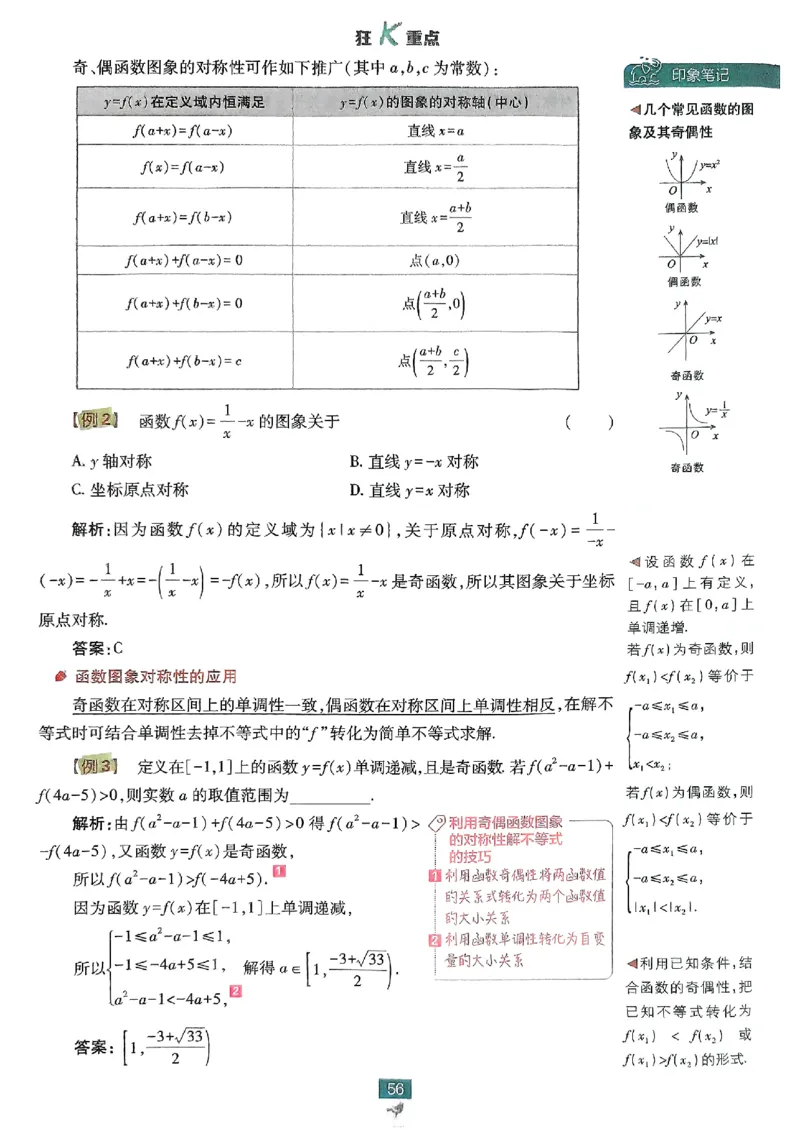 狂K重点
奇、偶函数图象的对称性可作如下推广(其中 a,b,c 为常数):
y=f(x)在定义域内恒满足 y=f(x)的图象的对称轴(中心)
f(a+x)=f(a-x) 直线 x=a
f(x)=f(a-x) 直线 x=a/2
f(a+x)=f(b-x) 直线 x=(a+b)/2
f(a+x)+f(a-x)=0 点(a,0)
f(a+x)+f(b-x)=0 点((a+b)/2,0)
f(a+x)+f(b-x)=c 点((a+b)/2,c/2)
【例2】 函数 f(x)=1/x-x 的图象关于 ( )
A. y 轴对称 B. 直线 y=-x 对称
C. 坐标原点对称 D. 直线 y=x 对称
解析:因为函数 f(x)的定义域为{x|x≠0},关于原点对称,f(-x)=1/(-x)-
(-x)=-1/x+x=-(1/x-x)=-f(x),所以f(x)=1/x-x 是奇函数,所以其图象关于坐标
原点对称.
答案:C
函数图象对称性的应用
奇函数在对称区间上的单调性一致,偶函数在对称区间上单调性相反,在解不
等式时可结合单调性去掉不等式中的“f”转化为简单不等式求解.
【例3】 定义在[-1,1]上的函数 y=f(x)单调递减,且是奇函数. 若f(a²-a-1)+
f(4a-5)>0,则实数 a 的取值范围为________.
解析:由f(a²-a-1)+f(4a-5)>0 得f(a²-a-1)>
-f(4a-5),又函数 y=f(x)是奇函数,
所以f(a²-a-1)>f(-4a+5). 1
因为函数 y=f(x)在[-1,1]上单调递减,
所以{-1≤a²-a-1≤1,
-1≤-4a+5≤1, 解得 a∈[1,(-3+√33)/2).
a²-a-1<-4a+5, 2
答案:[1,(-3+√33)/2)
利用奇偶函数图象
的对称性解不等式
的技巧
1 利用函数奇偶性将两函数值
的关系式转化为两个函数值
的大小关系
2 利用函数单调性转化为自变
量的大小关系
印象笔记
◀几个常见函数的图
象及其奇偶性
y
y=x²
O x
偶函数
y
y=|x|
O x
偶函数
y
y=x
O x
奇函数
y
y=1/x
O x
奇函数
◀设函数 f(x)在
[-a,a]上有定义,
且f(x)在[0,a]上
单调递增.
若f(x)为奇函数,则
f(x₁)<f(x₂)等价于
{-a≤x₁≤a,
-a≤x₂≤a,
x₁<x₂;
若f(x)为偶函数,则
f(x₁)<f(x₂)等价于
{-a≤x₁≤a,
-a≤x₂≤a,
|x₁|<|x₂|.
◀利用已知条件,结
合函数的奇偶性,把
已知不等式转化为
f(x₁) < f(x₂) 或
f(x₁)>f(x₂)的形式.
56